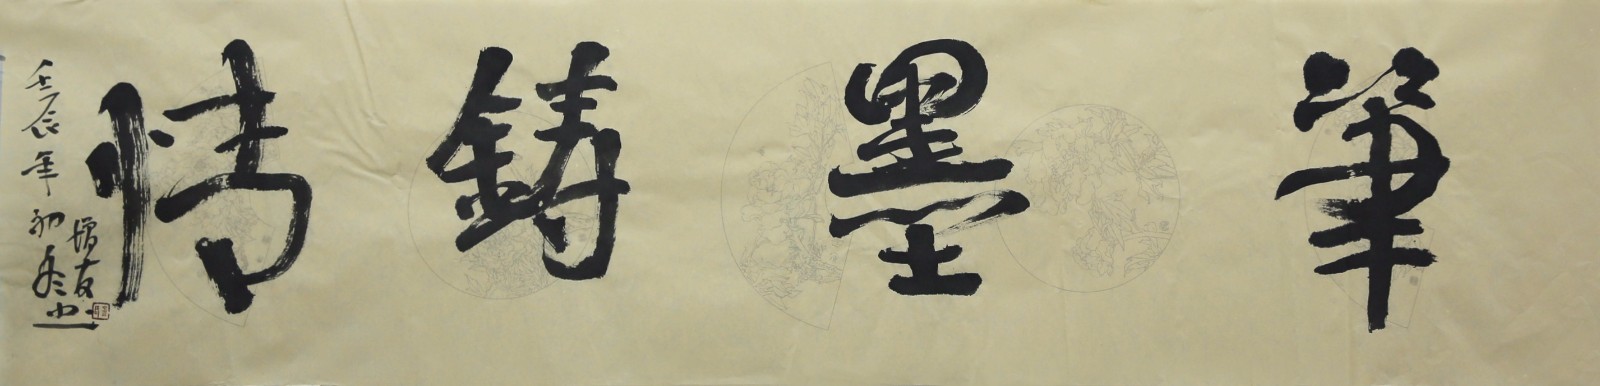 筆墨鑄情
壬辰年初冬
友